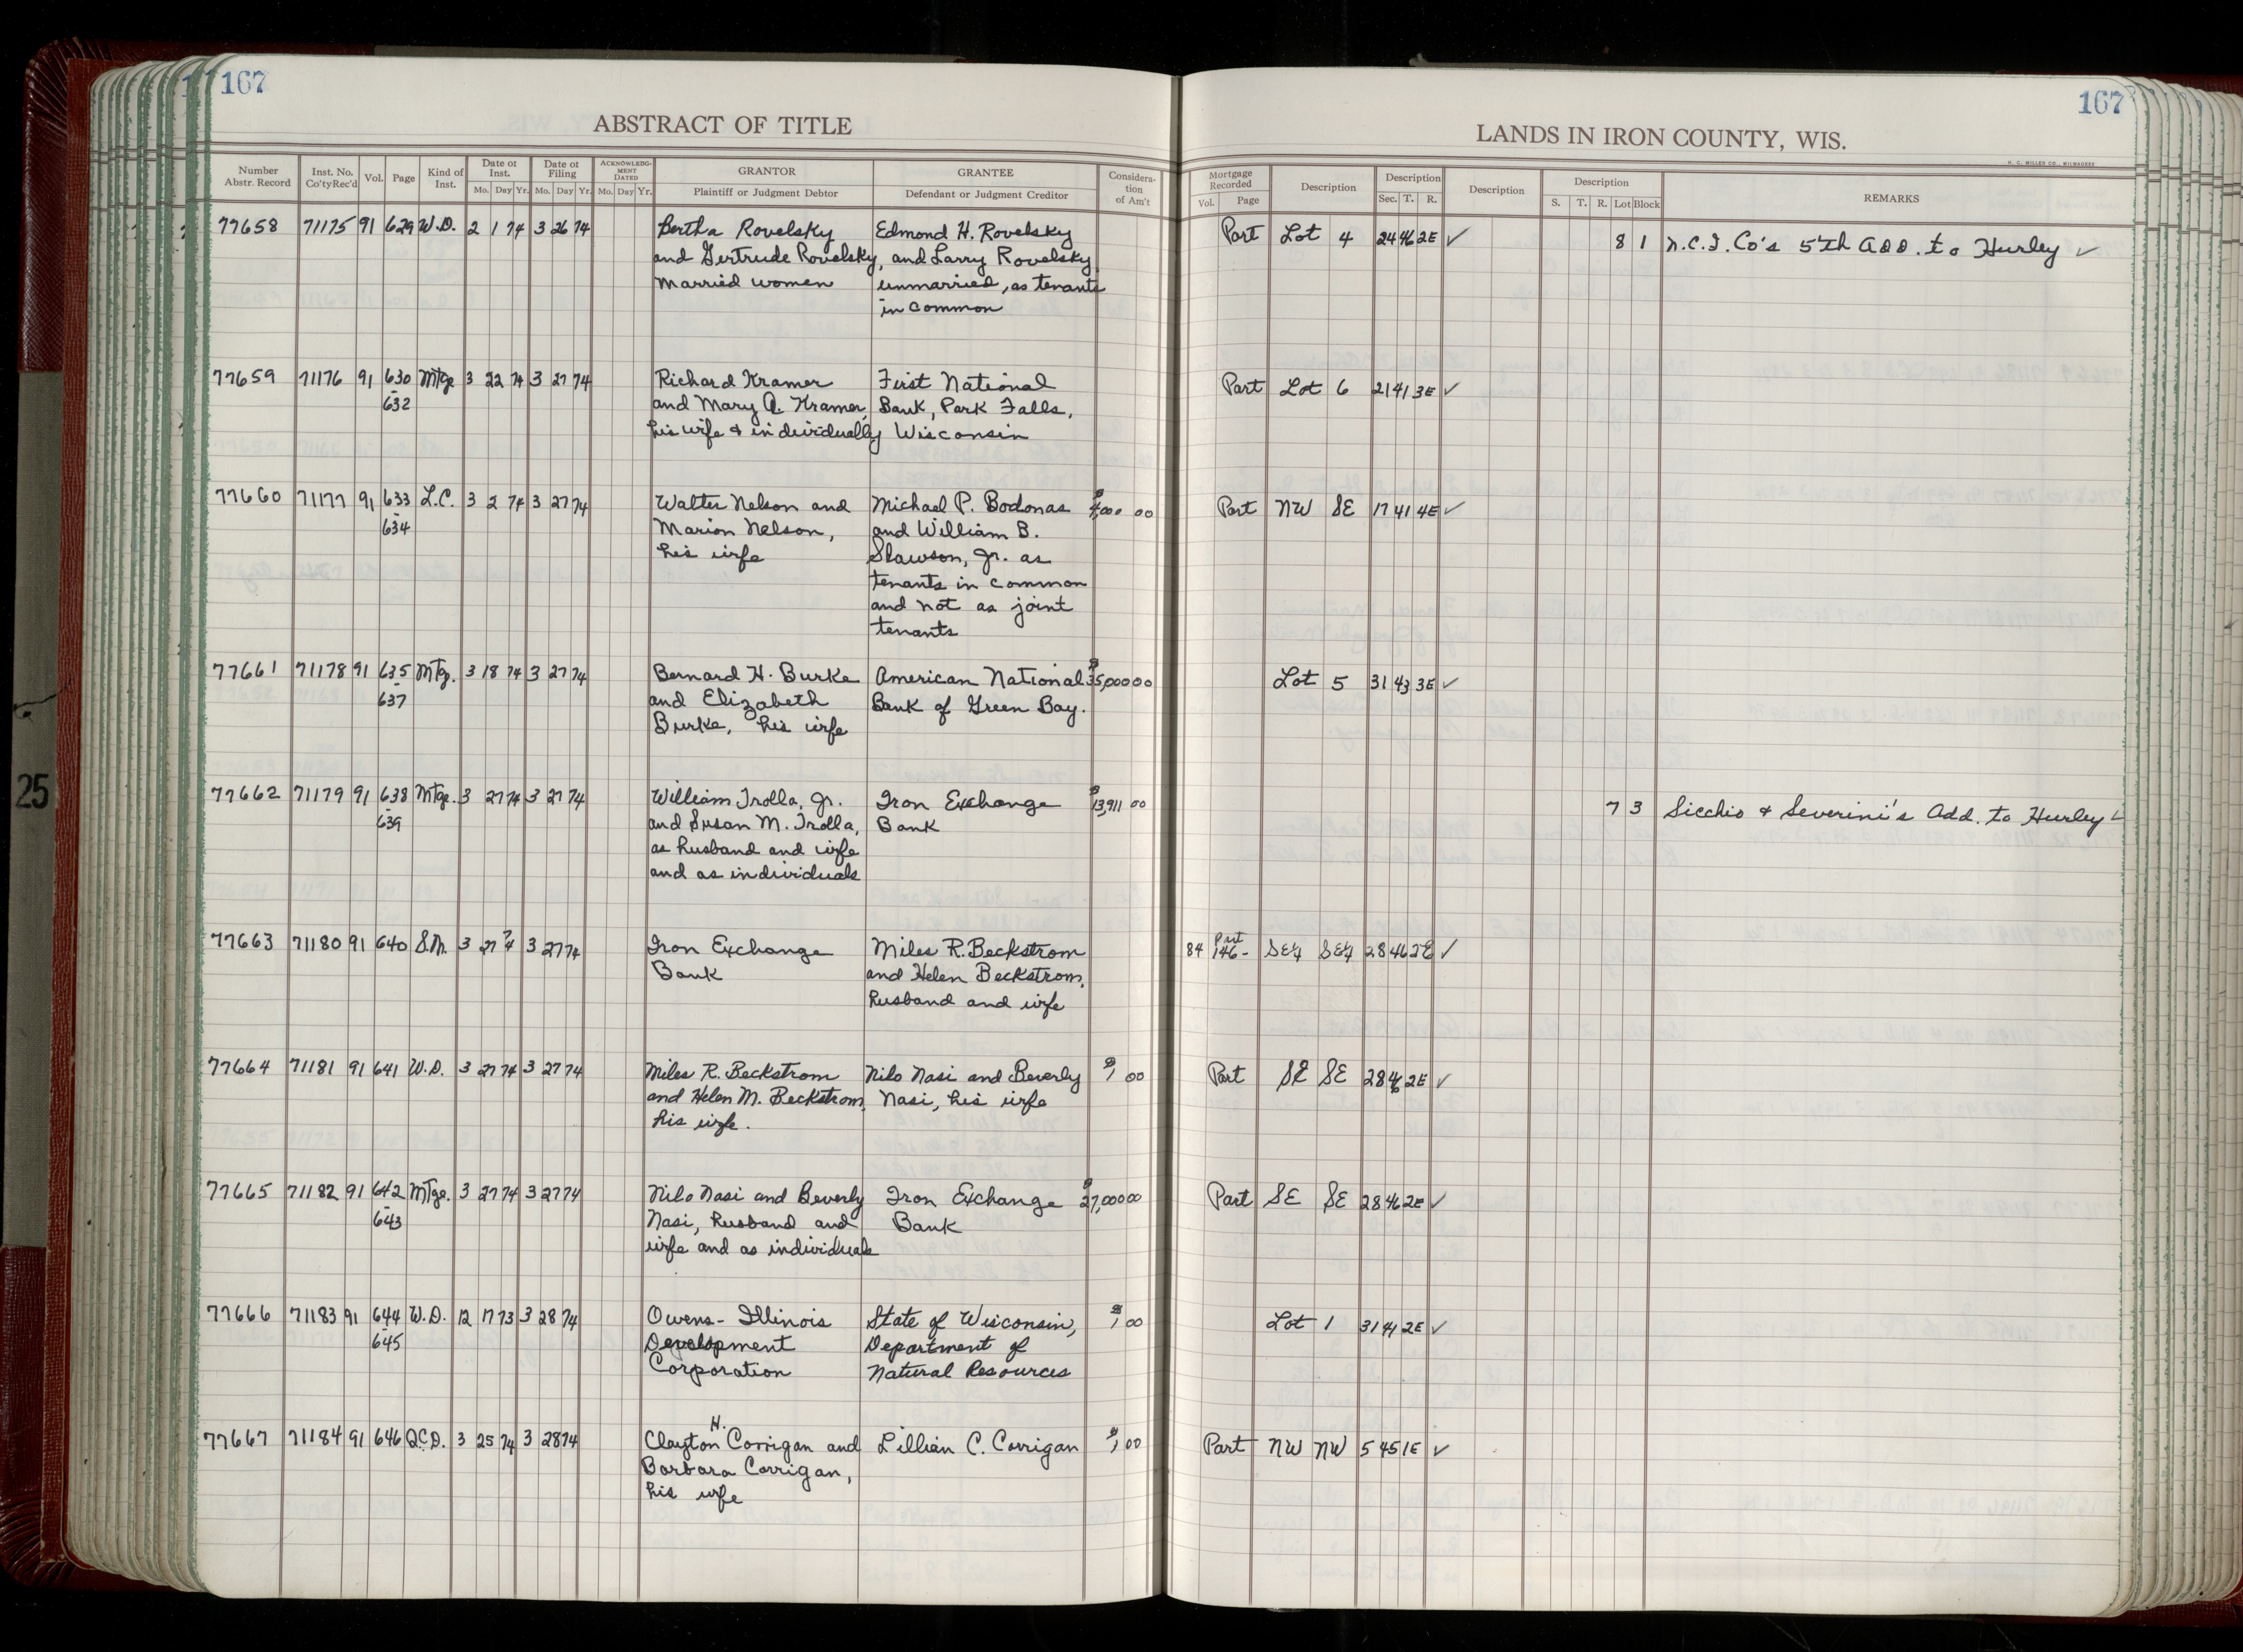 167
ABSTRACT OF TITLE
Number Abstr. Record | Inst. No. Co'tyRec'd | Vol. | Page | Kind of Inst. | Date of Inst. Mo. Day Yr. | Date of Filing Mo. Day Yr. | ACKNOWLEDGMENT DATED Mo. Day Yr. | GRANTOR Plaintiff or Judgment Debtor | GRANTEE Defendant or Judgment Creditor | Consideration of Am't
77658 71175 91 629 W.D. 2 1 74 3 26 74 Bertha Rovelsky Edmond H. Rovelsky
and Gertrude Rovelsky, and Larry Rovelsky,
married women unmarried, as tenants
in common
77659 71176 91 630 Mtge 3 22 74 3 27 74 Richard Kramer First National
- 632 and Mary A. Kramer, Bank, Park Falls,
his wife & individually Wisconsin
77660 71177 91 633 L.C. 3 2 74 3 27 74 Walter Nelson and Michael P. Bodonas $4,000 00
- 634 Marion Nelson, and William B.
his wife Slawson, Jr. as
tenants in common
and not as joint
tenants
77661 71178 91 635 Mtg. 3 18 74 3 27 74 Bernard H. Burke American National $35,000 00
- 637 and Elizabeth Bank of Green Bay.
Burke, his wife
77662 71179 91 638 Mtge. 3 27 74 3 27 74 William Trolla, Jr. Iron Exchange $13,911 00
- 639 and Susan M. Trolla, Bank
as husband and wife
and as individuals
77663 71180 91 640 S.M. 3 27 74 3 27 74 Iron Exchange Miles R. Beckstrom
Bank and Helen Beckstrom,
husband and wife
77664 71181 91 641 W.D. 3 27 74 3 27 74 Miles R. Beckstrom Nilo Nasi and Beverly $1 00
and Helen M. Beckstrom, Nasi, his wife
his wife.
77665 71182 91 642 Mtge. 3 27 74 3 27 74 Nilo Nasi and Beverly Iron Exchange $27,000 00
- 643 Nasi, husband and Bank
wife and as individuals
77666 71183 91 644 W.D. 12 17 73 3 28 74 Owens-Illinois State of Wisconsin, $1 00
- 645 Development Department of
Corporation Natural Resources
77667 71184 91 646 Q.C.D. 3 25 74 3 28 74 Clayton H. Corrigan and Lillian C. Corrigan $1 00
Barbara Corrigan,
his wife
25
167
LANDS IN IRON COUNTY, WIS.
H. C. MILLER CO., MILWAUKEE
Mortgage Recorded Vol. Page | Description | Description Sec. T. R. | Description | Description S. T. R. Lot Block | REMARKS
Part Lot 4 24 46 2E ✓ 8 1 N.C.I. Co's 5th Add. to Hurley ✓
Part Lot 6 21 41 3E ✓
Part NW SE 17 41 4E ✓
Lot 5 31 43 3E ✓
7 3 Sicchio & Severini's Add. to Hurley ✓
84 146- Part SE¼ SE¼ 28 46 2E ✓
Part SE SE 28 46 2E ✓
Part SE SE 28 46 2E ✓
Lot 1 31 41 2E ✓
Part NW NW 5 45 1E ✓